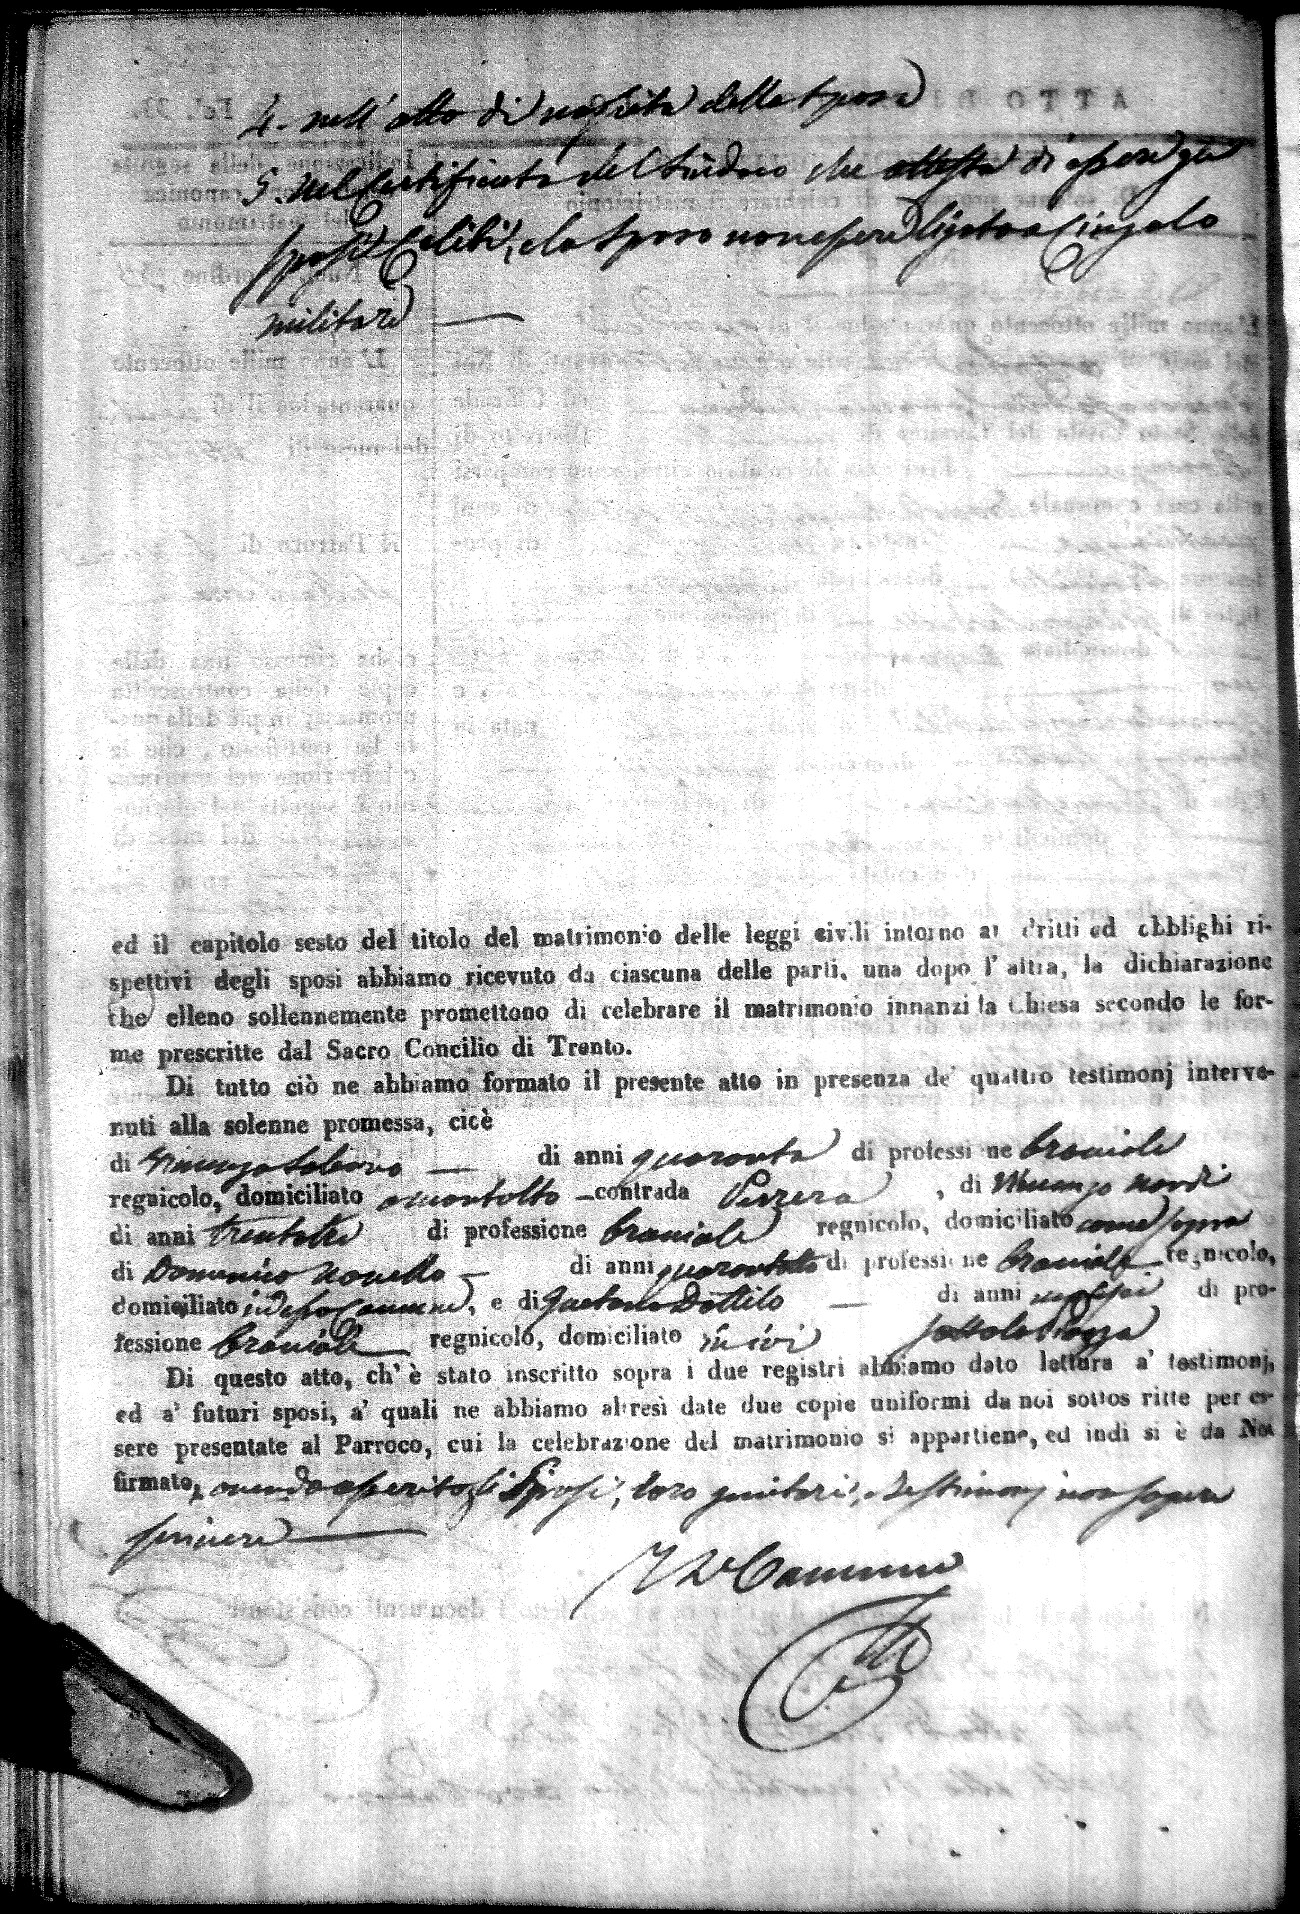 4. nell'atto di nascita della sposa
5. nel certificato del Sindaco che attesta di essere gli
sposi Celibi, e lo sposo non essere ligato a Cingolo
militare
ed il capitolo sesto del titolo del matrimonio delle leggi civili intorno ai dritti ed obblighi ri-
spettivi degli sposi abbiamo ricevuto da ciascuna delle parti, una dopo l'altra, la dichiarazione
che elleno sollennemente promettono di celebrare il matrimonio innanzi la Chiesa secondo le for-
me prescritte dal Sacro Concilio di Trento.
Di tutto ciò ne abbiamo formato il presente atto in presenza de' quattro testimonj interve-
nuti alla solenne promessa, cioè
di Vincenzo Salerno di anni quaranta di professione bracciale
regnicolo, domiciliato contrada Pizzera, di Vincenzo Nardi
di anni trentotto di professione bracciale regnicolo, domiciliato come sopra
di Domenico Novello di anni quarantotto di professione bracciale regnicolo,
domiciliato in desso Comune, e di Gaetano Dottilo di anni di pro-
fessione bracciale regnicolo, domiciliato in ivi sotto la Piazza
Di questo atto, ch'è stato inscritto sopra i due registri abbiamo dato lettura a' testimonj,
ed a' futuri sposi, a' quali ne abbiamo altresì date due copie uniformi da noi sottoscritte per es-
sere presentate al Parroco, cui la celebrazione del matrimonio si appartiene, ed indi si è da Noi
firmato, avendo asserito gli Sposi, loro genitori, e testimonj non sapere
scrivere